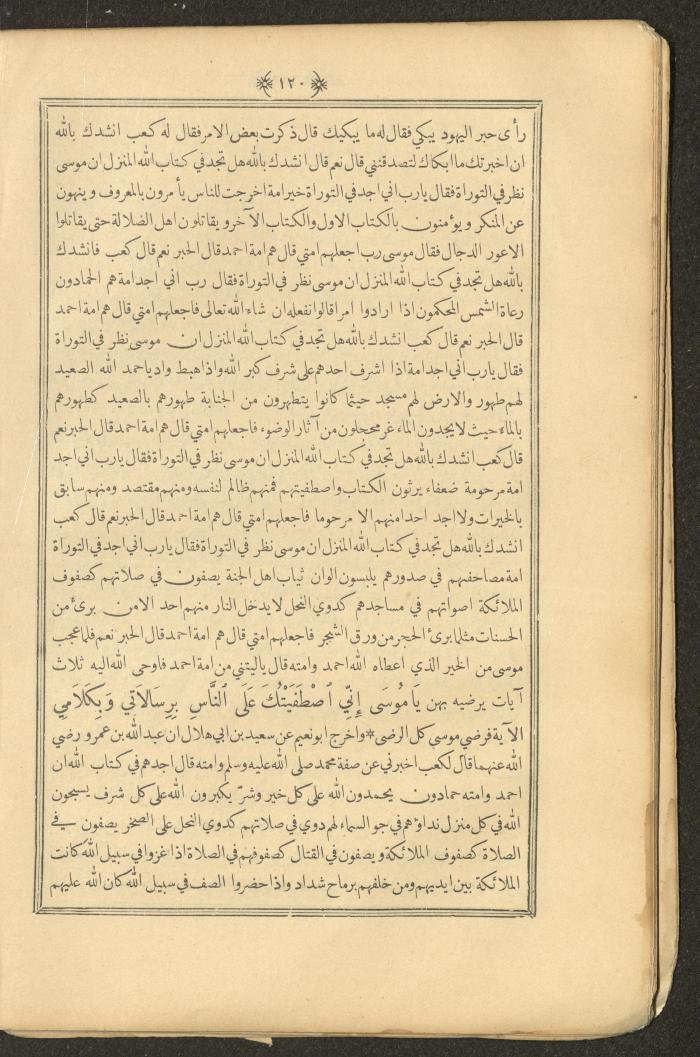 ١٢٠
رأى حبر اليهود يبكي فقال له ما يبكيك قال ذكرت بعض الامر فقال له كعب انشدك بالله
ان اخبرتك ما ابكاك لتصدقنني قال نعم قال انشدك بالله هل تجد في كتاب الله المنزل ان موسى
نظر في التوراة فقال يارب اني اجد في التوراة خير امة اخرجت للناس يأمرون بالمعروف وينهون
عن المنكر ويؤمنون بالكتاب الاول والكتاب الآخر ويقاتلون اهل الضلالة حتى يقاتلوا
الاعور الدجال فقال موسى رب اجعلهم امتي قال هم امة احمد قال الحبر نعم قال كعب فانشدك
بالله هل تجد في كتاب الله المنزل ان موسى نظر في التوراة فقال رب اني اجد امة هم الحمادون
رعاة الشمس المحكمون اذا ارادوا امرا قالوا نفعله ان شاء الله تعالى فاجعلهم امتي قال هم امة احمد
قال الحبر نعم قال كعب انشدك بالله هل تجد في كتاب الله المنزل ان موسى نظر في التوراة
فقال يارب اني اجد امة اذا اشرف احدهم على شرف كبر الله واذا هبط واديا حمد الله الصعيد
لهم طهور والارض لهم مسجد حيثما كانوا يتطهرون من الجنابة طهورهم بالصعيد كطهورهم
بالماء حيث لا يجدون الماء غر محجلون من آثار الوضوء فاجعلهم امتي قال هم امة احمد قال الحبر نعم
قال كعب انشدك بالله هل تجد في كتاب الله المنزل ان موسى نظر في التوراة فقال يارب اني اجد
امة مرحومة ضعفاء يرثون الكتاب واصطفيتهم فمنهم ظالم لنفسه ومنهم مقتصد ومنهم سابق
بالخيرات ولا اجد احدا منهم الا مرحوما فاجعلهم امتي قال هم امة احمد قال الحبر نعم قال كعب
انشدك بالله هل تجد في كتاب الله المنزل ان موسى نظر في التوراة فقال يارب اني اجد في التوراة
امة مصاحفهم في صدورهم يلبسون الوان ثياب اهل الجنة يصفون في صلاتهم كصفوف
الملائكة اصواتهم في مساجدهم كدوي النحل لا يدخل النار منهم احد الا من برئ من
الحسنات مثلما برئ الحجر من ورق الشجر فاجعلهم امتي قال هم امة احمد قال الحبر نعم فلما عجب
موسى من الخير الذي اعطاه الله احمد وامته قال ياليتني من امة احمد فاوحى الله اليه ثلاث
آيات يرضيه بهن يَامُوسَى إِنِّي ٱصْطَفَيْتُكَ عَلَى ٱلنَّاسِ بِرِسَالَاتِي وَبِكَلَامِي
الآية فرضي موسى كل الرضى * واخرج ابو نعيم عن سعيد بن ابي هلال ان عبد الله بن عمرو رضي
الله عنهما قال لكعب اخبرني عن صفة محمد صلى الله عليه وسلم وامته قال اجدهم في كتاب الله ان
احمد وامته حمادون يحمدون الله على كل خير وشرّ يكبرون الله على كل شرف يسبحون
الله في كل منزل نداؤهم في جو السماء لهم دوي في صلاتهم كدوي النحل على الصخر يصفون في
الصلاة كصفوف الملائكة ويصفون في القتال كصفوفهم في الصلاة اذا غزوا في سبيل الله كانت
الملائكة بين ايديهم ومن خلفهم برماح شداد واذا حضروا الصف في سبيل الله كان الله عليهم